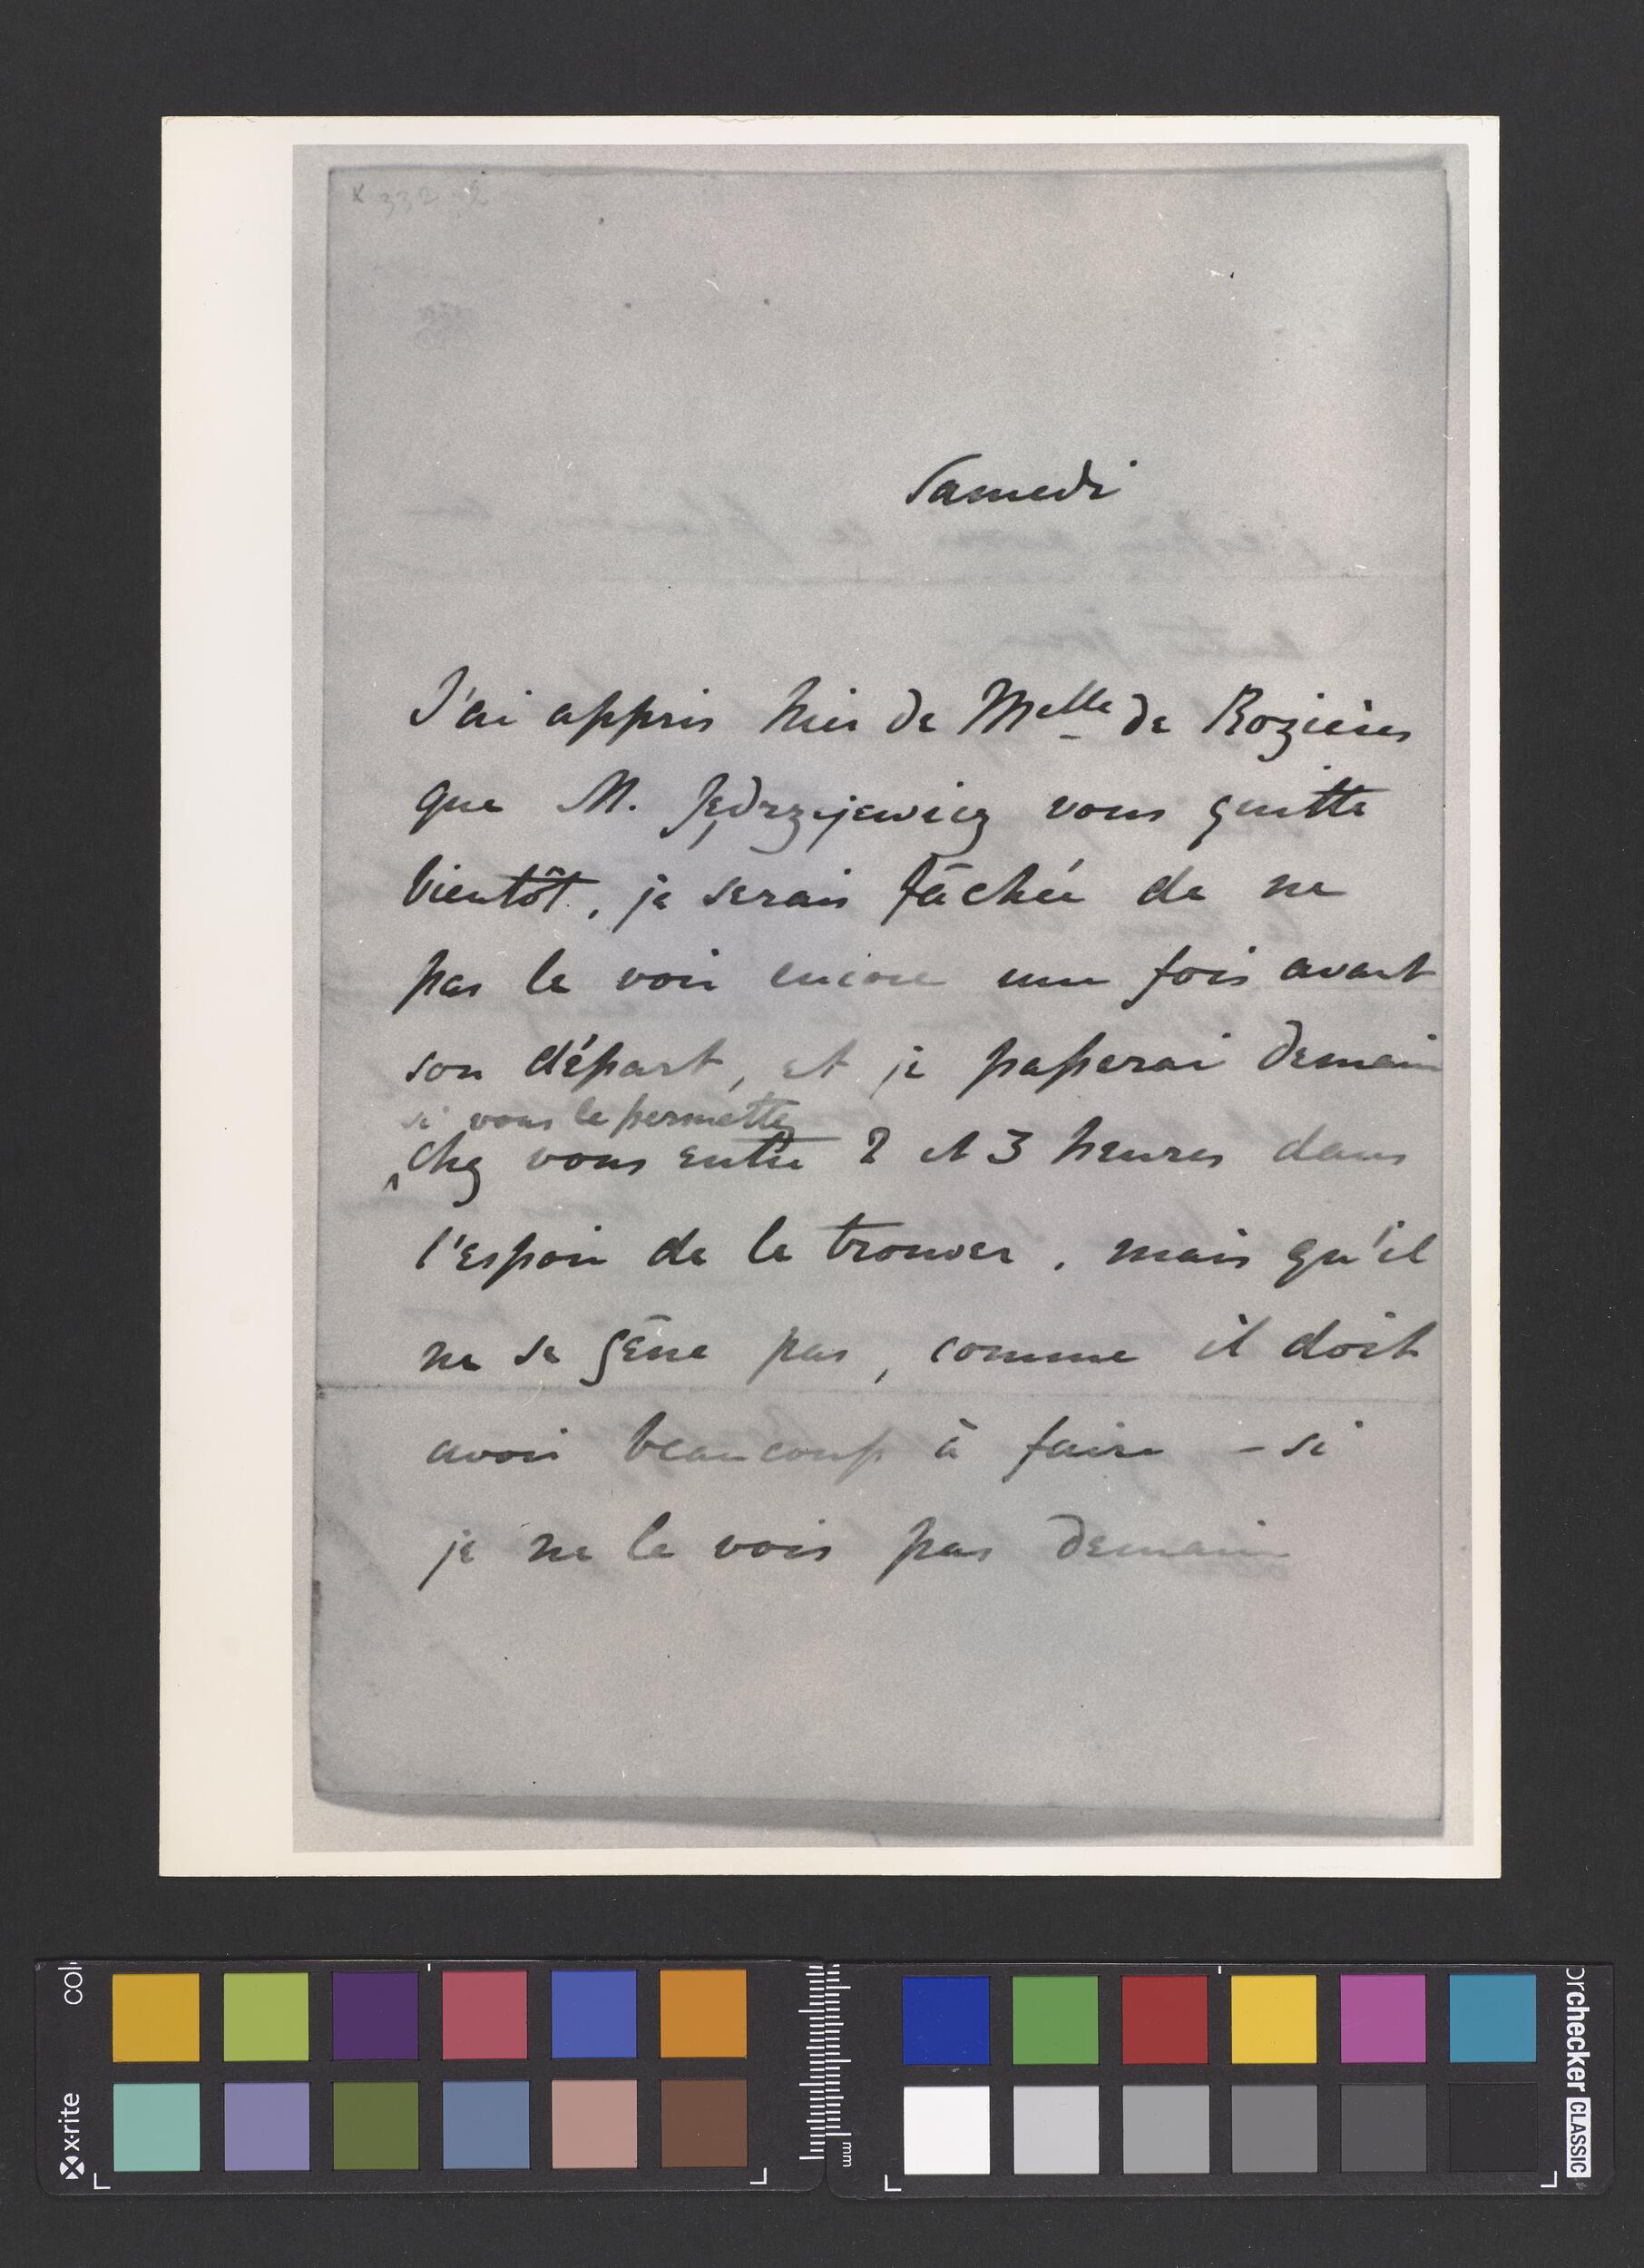 Samedi
J'ai appris hier de Melle de Rozières
que M. Jędrzejewicz vous quitte
bientôt, je serais fâchée de ne
pas le voir encore une fois avant
son départ, et je passerai demain
si vous le permettez
chez vous entre 2 et 3 heures dans
l'espoir de le trouver. mais qu'il
ne se gêne pas, comme il doit
avoir beaucoup à faire – si
je ne le vois pas demain
x·rite
mm
colorchecker CLASSIC